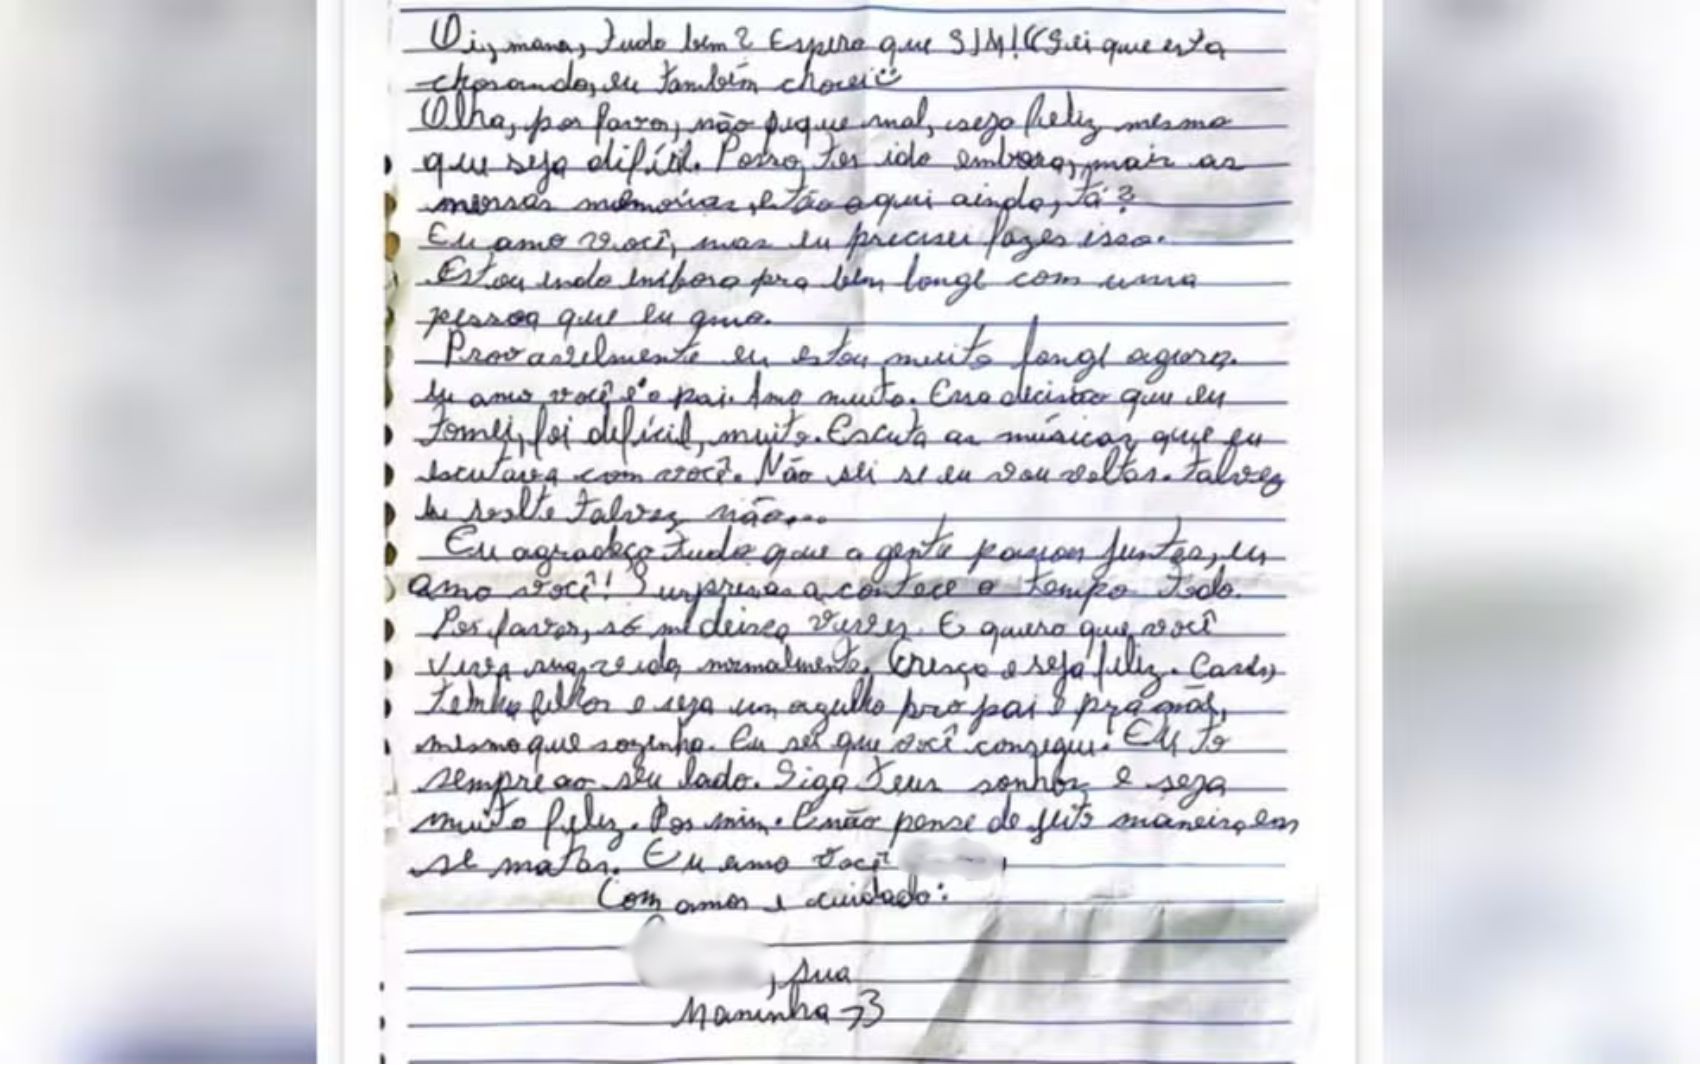 Oi, mana, tudo bem? Espero que SIM! (Sei que esta
chorando, eu também chorei
Olha, por favor, não fique mal, seja feliz mesmo
que seja difícil. Posso ter ido embora, mais as
nossas memórias, estão aqui ainda, tá?
Eu amo você, mas eu precisei fazer isso.
Estou indo embora pra bem longe com uma
pessoa que eu amo.
Provavelmente eu estou muito longe agora.
Eu amo você e o pai. Amo muito. Essa decisão que eu
tomei, foi difícil, muito. Escuta as músicas que eu
escutava com você. Não sei se eu vou voltar. Talvez
eu volte talvez não...
Eu agradeço tudo que a gente passou juntas, eu
amo você! Surpresas acontece o tempo todo.
Por favor, só me deixa viver. E quero que você
viva sua vida normalmente. Cresça e seja feliz. Case,
tenha filhos e seja um orgulho pro pai e pra mãe,
mesmo que sozinha. Eu sei que você consegue. Eu to
sempre ao seu lado. Siga teus sonhos e seja
muito feliz. Por mim. E não pense de jeito maneira em
se matar. Eu amo você
Com amor e cuidado:
, sua
Maninha <3